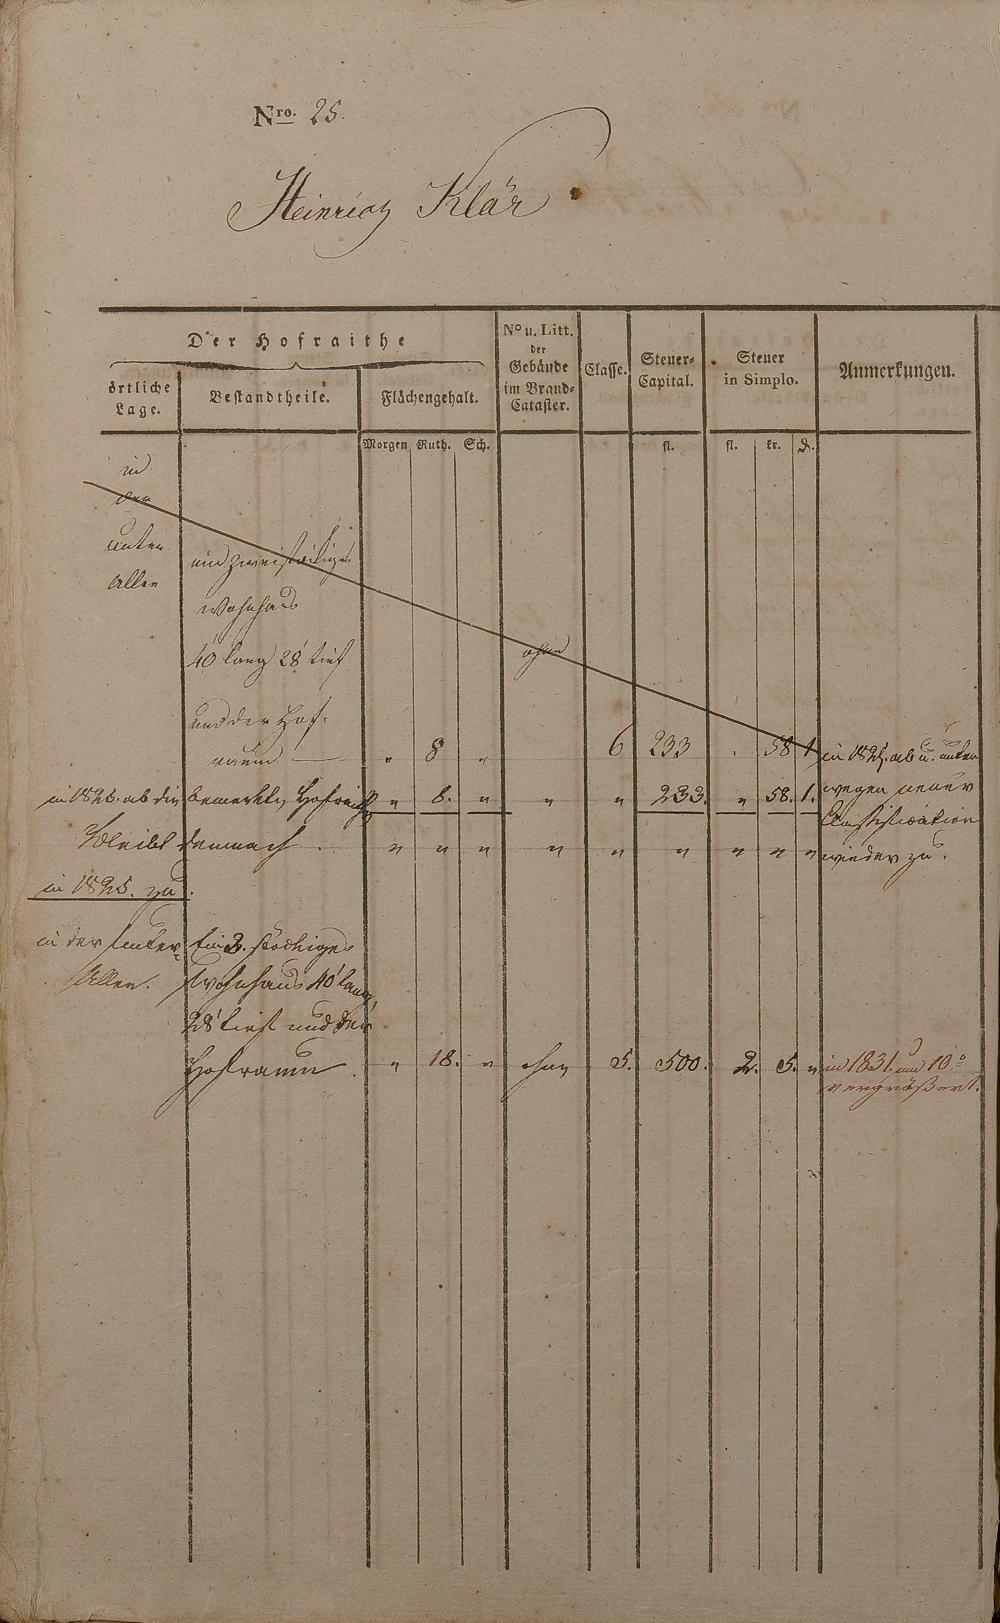 Nro. 25.
Heinrich Klär
Der Hofraithe
örtliche Lage.
Bestandtheile.
Flächengehalt.
No u. Litt. der Gebäude im Brand-Cataster.
Classe.
Steuer-Capital.
Steuer in Simplo.
Anmerkungen.
Morgen Ruth. Sch.
fl.
fl. kr. d.
in
der
unter
Allee
ein zweistöckiges
Wohnhaus
40' lang 28' tief
ohne
und der Hof-
raum — " 8 " 6 233 . 58 1
in 1825. ab u. unten
wegen neuer
Classification
wieder zu.
in 1825. ab die bemerkte Hofraithe " 8. " " " 233. " 58. 1.
Bleibt demnach . " " " " " " " " "
in 1825. zu.
in der Unter- Ein 2. stöckiges
Allee. Wohnhaus 40' lang,
28' tief und der
Hofraum . " 18. " ohne 5. 500. 2. 5. "
in 1831. um 10°
vergrößert.